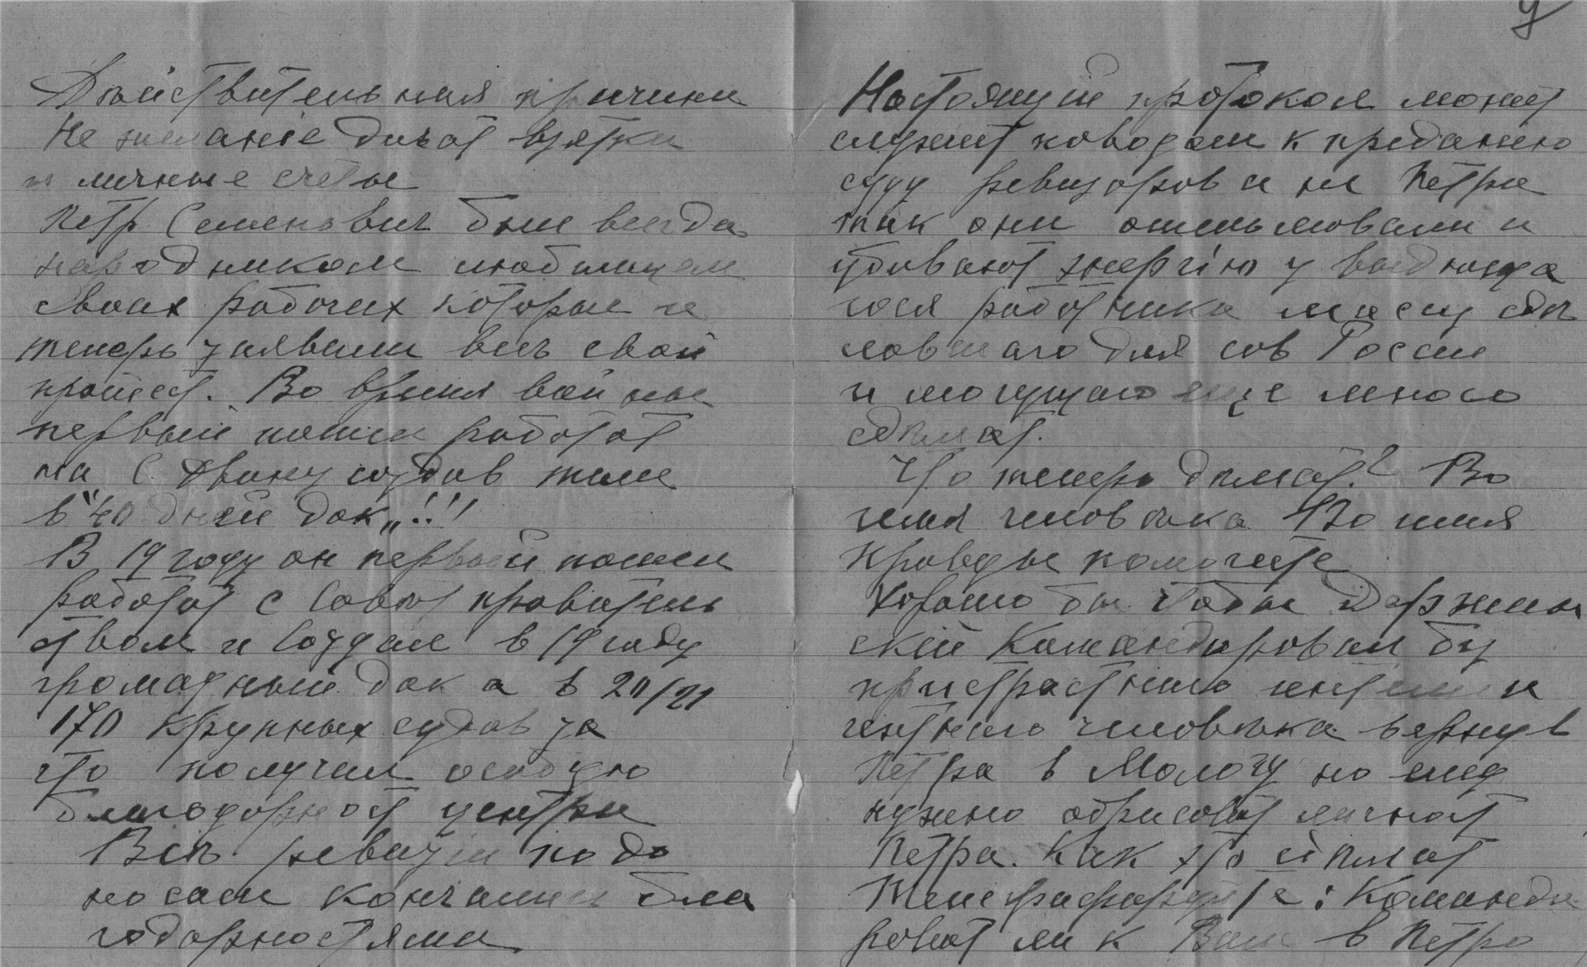 Дѣйствительная причина
Не желаніе дават взятки
и личные счеты
Петр Семенович был всегда
народником любимцем
своих рабочих которые и
теперь заявили весь свой
протест. Во время войны
первый пошел работат
на С Двину создав там
в "40 дней док"!!!
В 19 году он первый пошел
работат с Совѣт правитель
ством и создал в 19 году
громадный док а в 20/21
170 крупных судов за
что получил особую
благодарност центра
Всѣ ревизіи по до
носам кончались бла
годарностями
9
Настоящій протокол может
служит поводом к преданію
суду ревизоров а не Петра
так они ошельмовали и
убивают энергію у выдающа
гося работника массу сдѣ
лавшаго для сов Россіи
и могущаго еще много
сдѣлат.
Что теперь дѣлат? Во
имя человѣка Во имя
правды помогите
Хорошо бы чтобы Дзержин
скій командировал бы
пристрастнаго интелли
гентнаго человѣка вернув
Петра в Мологу но след
нужно обрисоват личност
Петра. Как это сдѣлат
Телеграфируйте: Команди
роват ли к Вам в Петро